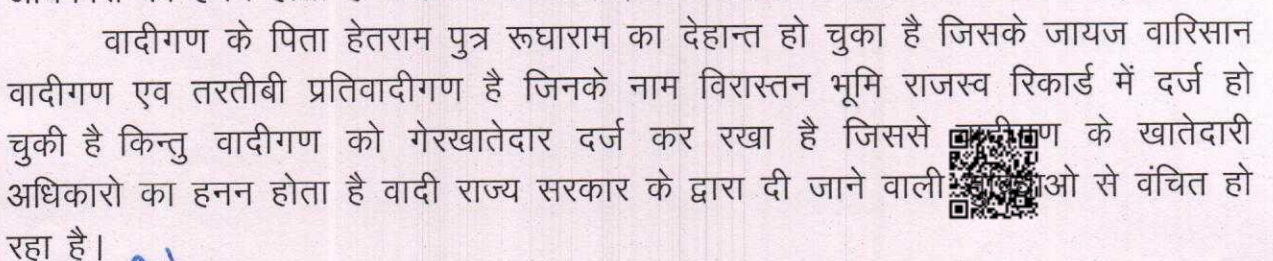 वादीगण के पिता हेतराम पुत्र रूघाराम का देहान्त हो चुका है जिसके जायज वारिसान
वादीगण एव तरतीबी प्रतिवादीगण है जिनके नाम विरास्तन भूमि राजस्व रिकार्ड में दर्ज हो
चुकी है किन्तु वादीगण को गेरखातेदार दर्ज कर रखा है जिससे के खातेदारी
अधिकारो का हनन होता है वादी राज्य सरकार के द्वारा दी जाने वाली से वंचित हो
रहा है।